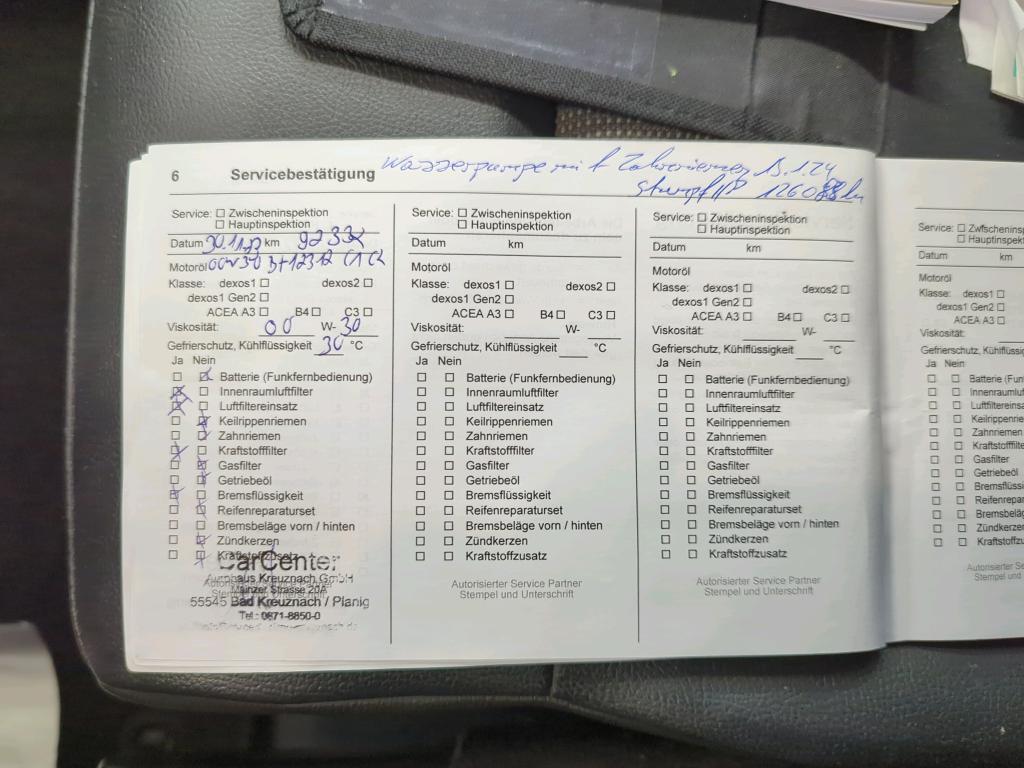 6 Servicebestätigung
Wasserpumpe mit Zahnriemen 15.1.24
126088 km
Service: ☐ Zwischeninspektion
☐ Hauptinspektion
Datum 30.11.22 km
Motoröl
Klasse: dexos1 ☐ dexos2 ☐
dexos1 Gen2 ☐
ACEA A3 ☐ B4 ☐ C3 ☐
Viskosität: 00 W- 30
Gefrierschutz, Kühlflüssigkeit 30 °C
Ja Nein
Batterie (Funkfernbedienung)
Innenraumluftfilter
Luftfiltereinsatz
Keilrippenriemen
Zahnriemen
Kraftstofffilter
Gasfilter
Getriebeöl
Bremsflüssigkeit
Reifenreparaturset
Bremsbeläge vorn / hinten
Zündkerzen
Kraftstoffzusatz
CarCenter
Autohaus Kreuznach GmbH
Mainzer Strasse 20A
55545 Bad Kreuznach / Planig
Tel.: 0671-8850-0
Service: ☐ Zwischeninspektion
☐ Hauptinspektion
Datum km
Motoröl
Klasse: dexos1 ☐ dexos2 ☐
dexos1 Gen2 ☐
ACEA A3 ☐ B4 ☐ C3 ☐
Viskosität: W-
Gefrierschutz, Kühlflüssigkeit °C
Ja Nein
☐ ☐ Batterie (Funkfernbedienung)
☐ ☐ Innenraumluftfilter
☐ ☐ Luftfiltereinsatz
☐ ☐ Keilrippenriemen
☐ ☐ Zahnriemen
☐ ☐ Kraftstofffilter
☐ ☐ Gasfilter
☐ ☐ Getriebeöl
☐ ☐ Bremsflüssigkeit
☐ ☐ Reifenreparaturset
☐ ☐ Bremsbeläge vorn / hinten
☐ ☐ Zündkerzen
☐ ☐ Kraftstoffzusatz
Autorisierter Service Partner
Stempel und Unterschrift
Service: ☐ Zwischeninspektion
☐ Hauptinspektion
Datum km
Motoröl
Klasse: dexos1 ☐ dexos2 ☐
dexos1 Gen2 ☐
ACEA A3 ☐ B4 ☐ C3 ☐
Viskosität: W-
Gefrierschutz, Kühlflüssigkeit °C
Ja Nein
☐ ☐ Batterie (Funkfernbedienung)
☐ ☐ Innenraumluftfilter
☐ ☐ Luftfiltereinsatz
☐ ☐ Keilrippenriemen
☐ ☐ Zahnriemen
☐ ☐ Kraftstofffilter
☐ ☐ Gasfilter
☐ ☐ Getriebeöl
☐ ☐ Bremsflüssigkeit
☐ ☐ Reifenreparaturset
☐ ☐ Bremsbeläge vorn / hinten
☐ ☐ Zündkerzen
☐ ☐ Kraftstoffzusatz
Autorisierter Service Partner
Stempel und Unterschrift
Service: ☐ Zwischeninspekt
☐ Hauptinspekt
Datum km
Motoröl
Klasse: dexos1 ☐
dexos1 Gen2 ☐
ACEA A3 ☐
Viskosität:
Gefrierschutz, Kühlflüssig
Ja Nein
☐ ☐ Batterie (Funkf
☐ ☐ Innenraumluf
☐ ☐ Luftfiltereinsa
☐ ☐ Keilrippenrie
☐ ☐ Zahnriemen
☐ ☐ Kraftstofffilte
☐ ☐ Gasfilter
☐ ☐ Getriebeöl
☐ ☐ Bremsflüssi
☐ ☐ Reifenrepar
☐ ☐ Bremsbeläg
☐ ☐ Zündkerzen
☐ ☐ Kraftstoffz
Autorisierter Se
Stempel und